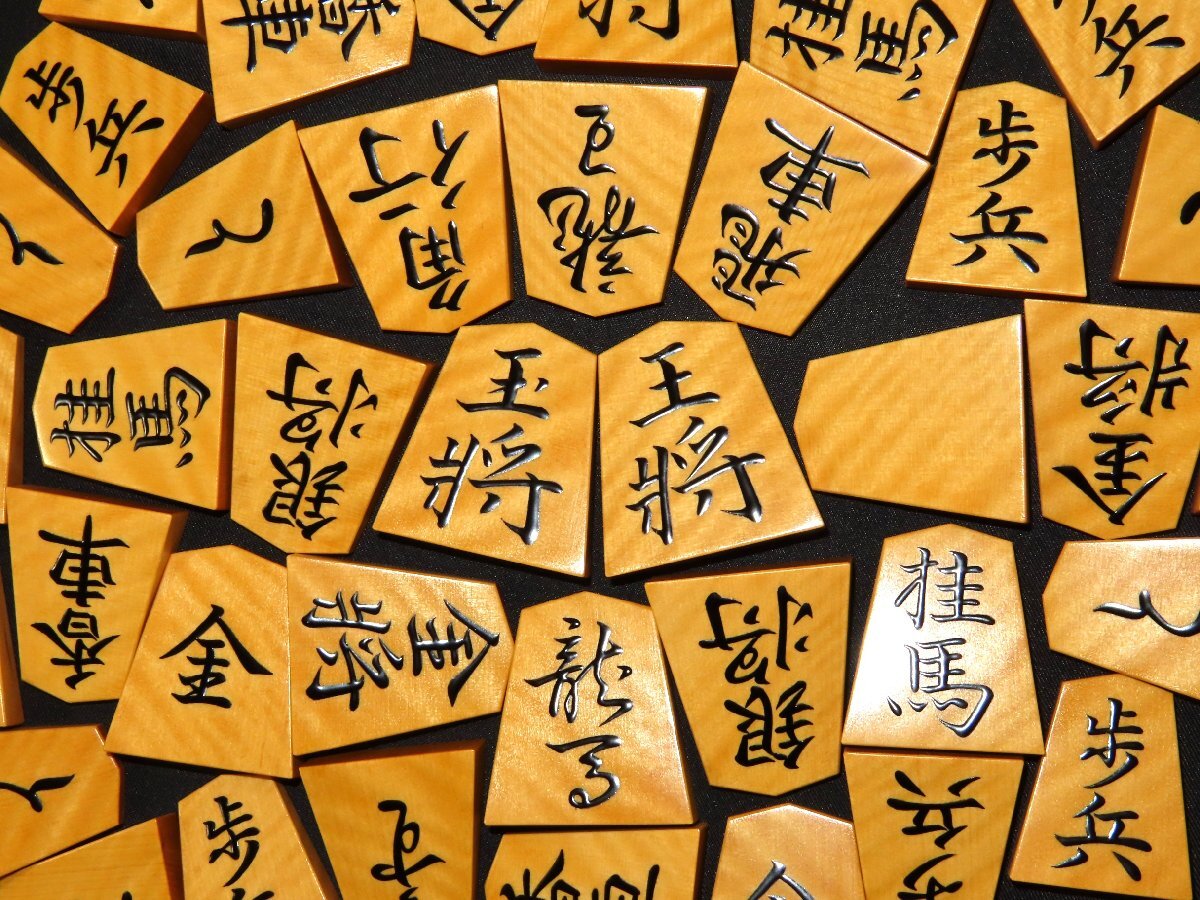 香車
桂馬
歩兵
歩兵
と
角行
龍王
飛車
歩兵
桂馬
銀将
玉将
王将
金将
香車
金
金将
龍馬
銀将
桂馬
と
歩兵
と
歩兵